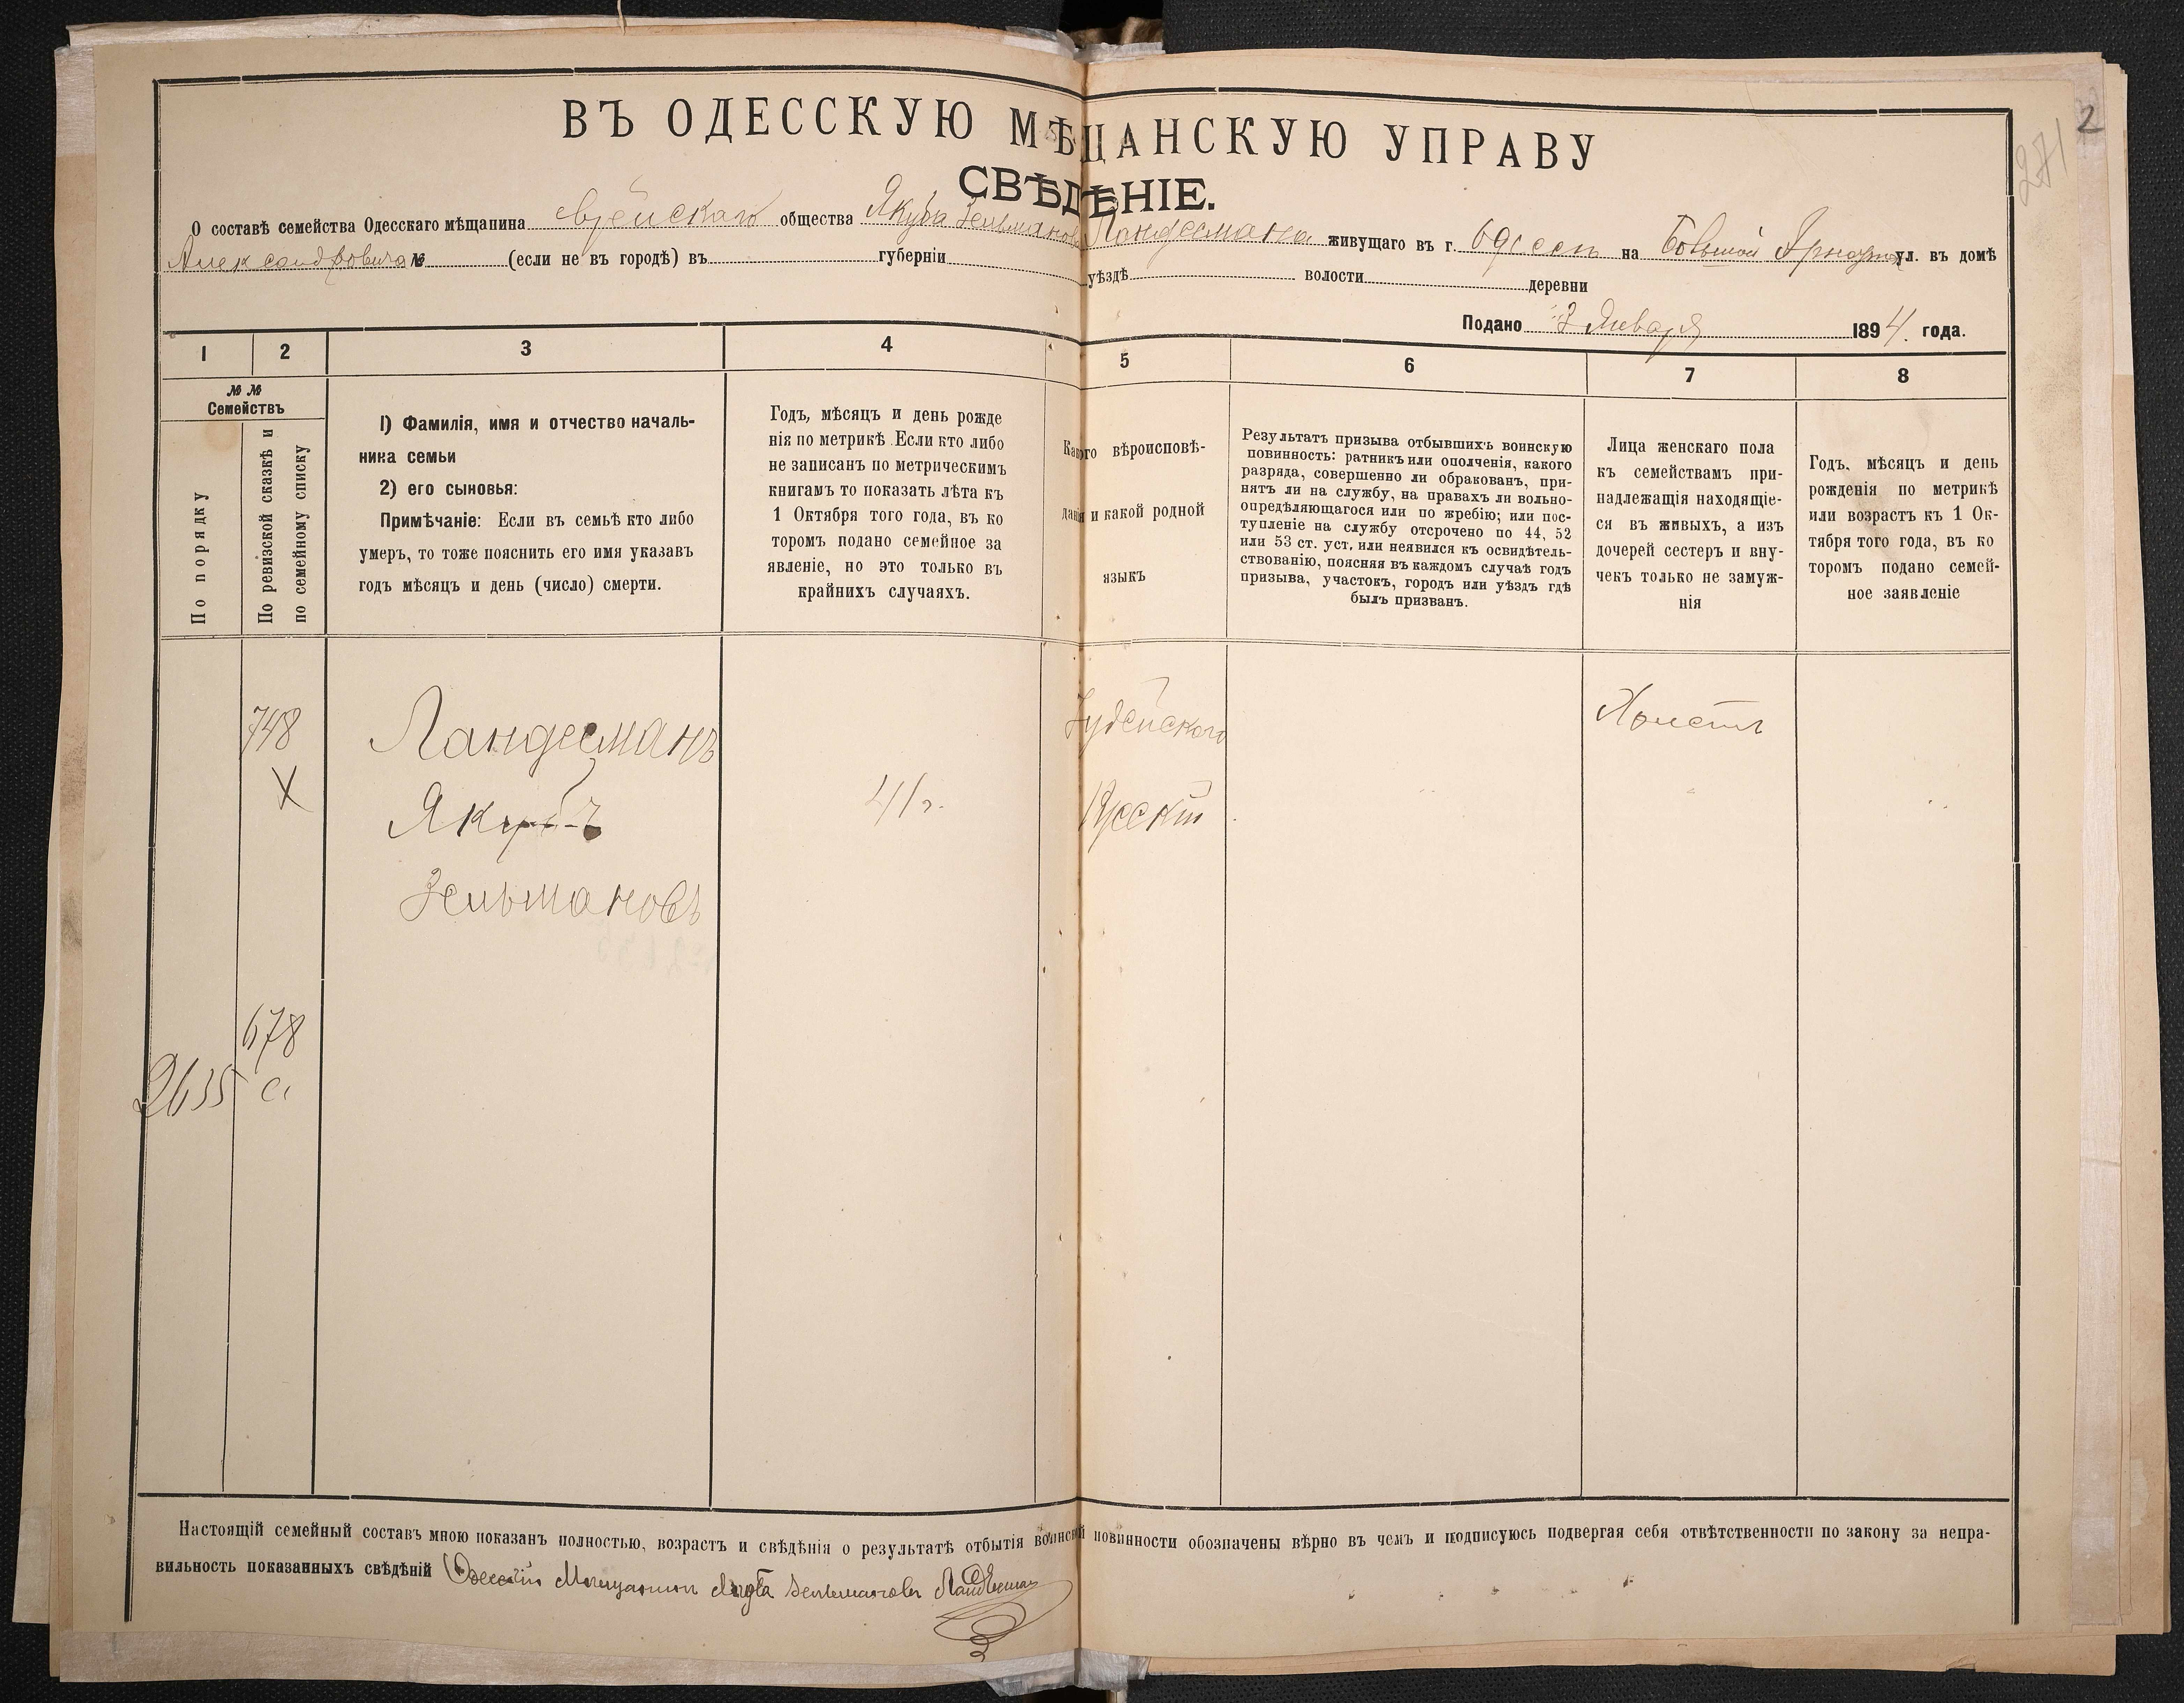 2
271
ВЪ ОДЕССКУЮ МѢЩАНСКУЮ УПРАВУ
СВѢДѢНІЕ.
О составѣ семейства Одесскаго мѣщанина еврейскаго общества Якуба Зельманова Ландесмана живущаго въ г. Одессѣ на Большой Арнаутск ул. въ домѣ
Александровича № (если не въ городѣ) въ губерніи уѣздѣ волости деревни
Подано 3 Января 1894 года.
1 2 3 4 5 6 7 8
№ № Семействъ
По порядку
По ревизской сказкѣ и
по семейному списку
1) Фамилія, имя и отчество началь-
ника семьи
2) его сыновья:
Примѣчаніе: Если въ семьѣ кто либо
умеръ, то тоже пояснить его имя указавъ
годъ мѣсяцъ и день (число) смерти.
Годъ, мѣсяцъ и день рожде
нія по метрикѣ. Если кто либо
не записанъ по метрическимъ
книгамъ то показать лѣта къ
1 Октября того года, въ ко
торомъ подано семейное за
явленіе, но это только въ
крайнихъ случаяхъ.
Какого вѣроисповѣ-
данія и какой родной
языкъ
Результатъ призыва отбывшихъ воинскую
повинность: ратникъ или ополченія, какого
разряда, совершенно ли обракованъ, при-
нятъ ли на службу, на правахъ ли вольно-
опредѣляющагося или по жребію; или пос-
тупленіе на службу отсрочено по 44, 52
или 53 ст. уст. или неявился къ освидѣтель-
ствованію, поясняя въ каждомъ случаѣ годъ
призыва, участокъ, городъ или уѣздъ гдѣ
былъ призванъ.
Лица женскаго пола
къ семействамъ при-
надлежащія находящіе-
ся въ живыхъ, а изъ
дочерей сестеръ и вну-
чекъ только не замуж-
нія
Годъ, мѣсяцъ и день
рожденія по метрикѣ
или возрастъ къ 1 Ок-
тября того года, въ ко
торомъ подано семей-
ное заявленіе
748 Ландесманъ Іудейскаго Холостъ
Якубъ 41 г. Русскій
Зельмановъ
678
2635
Настоящій семейный составъ мною показанъ полностью, возрастъ и свѣдѣнія о результатѣ отбытія воинской повинности обозначены вѣрно въ чемъ и подписуюсь подвергая себя отвѣтственности по закону за непра-
вильность показанныхъ свѣдѣній Одесскій Мещанинъ Якубъ Зельмановъ Ландесман